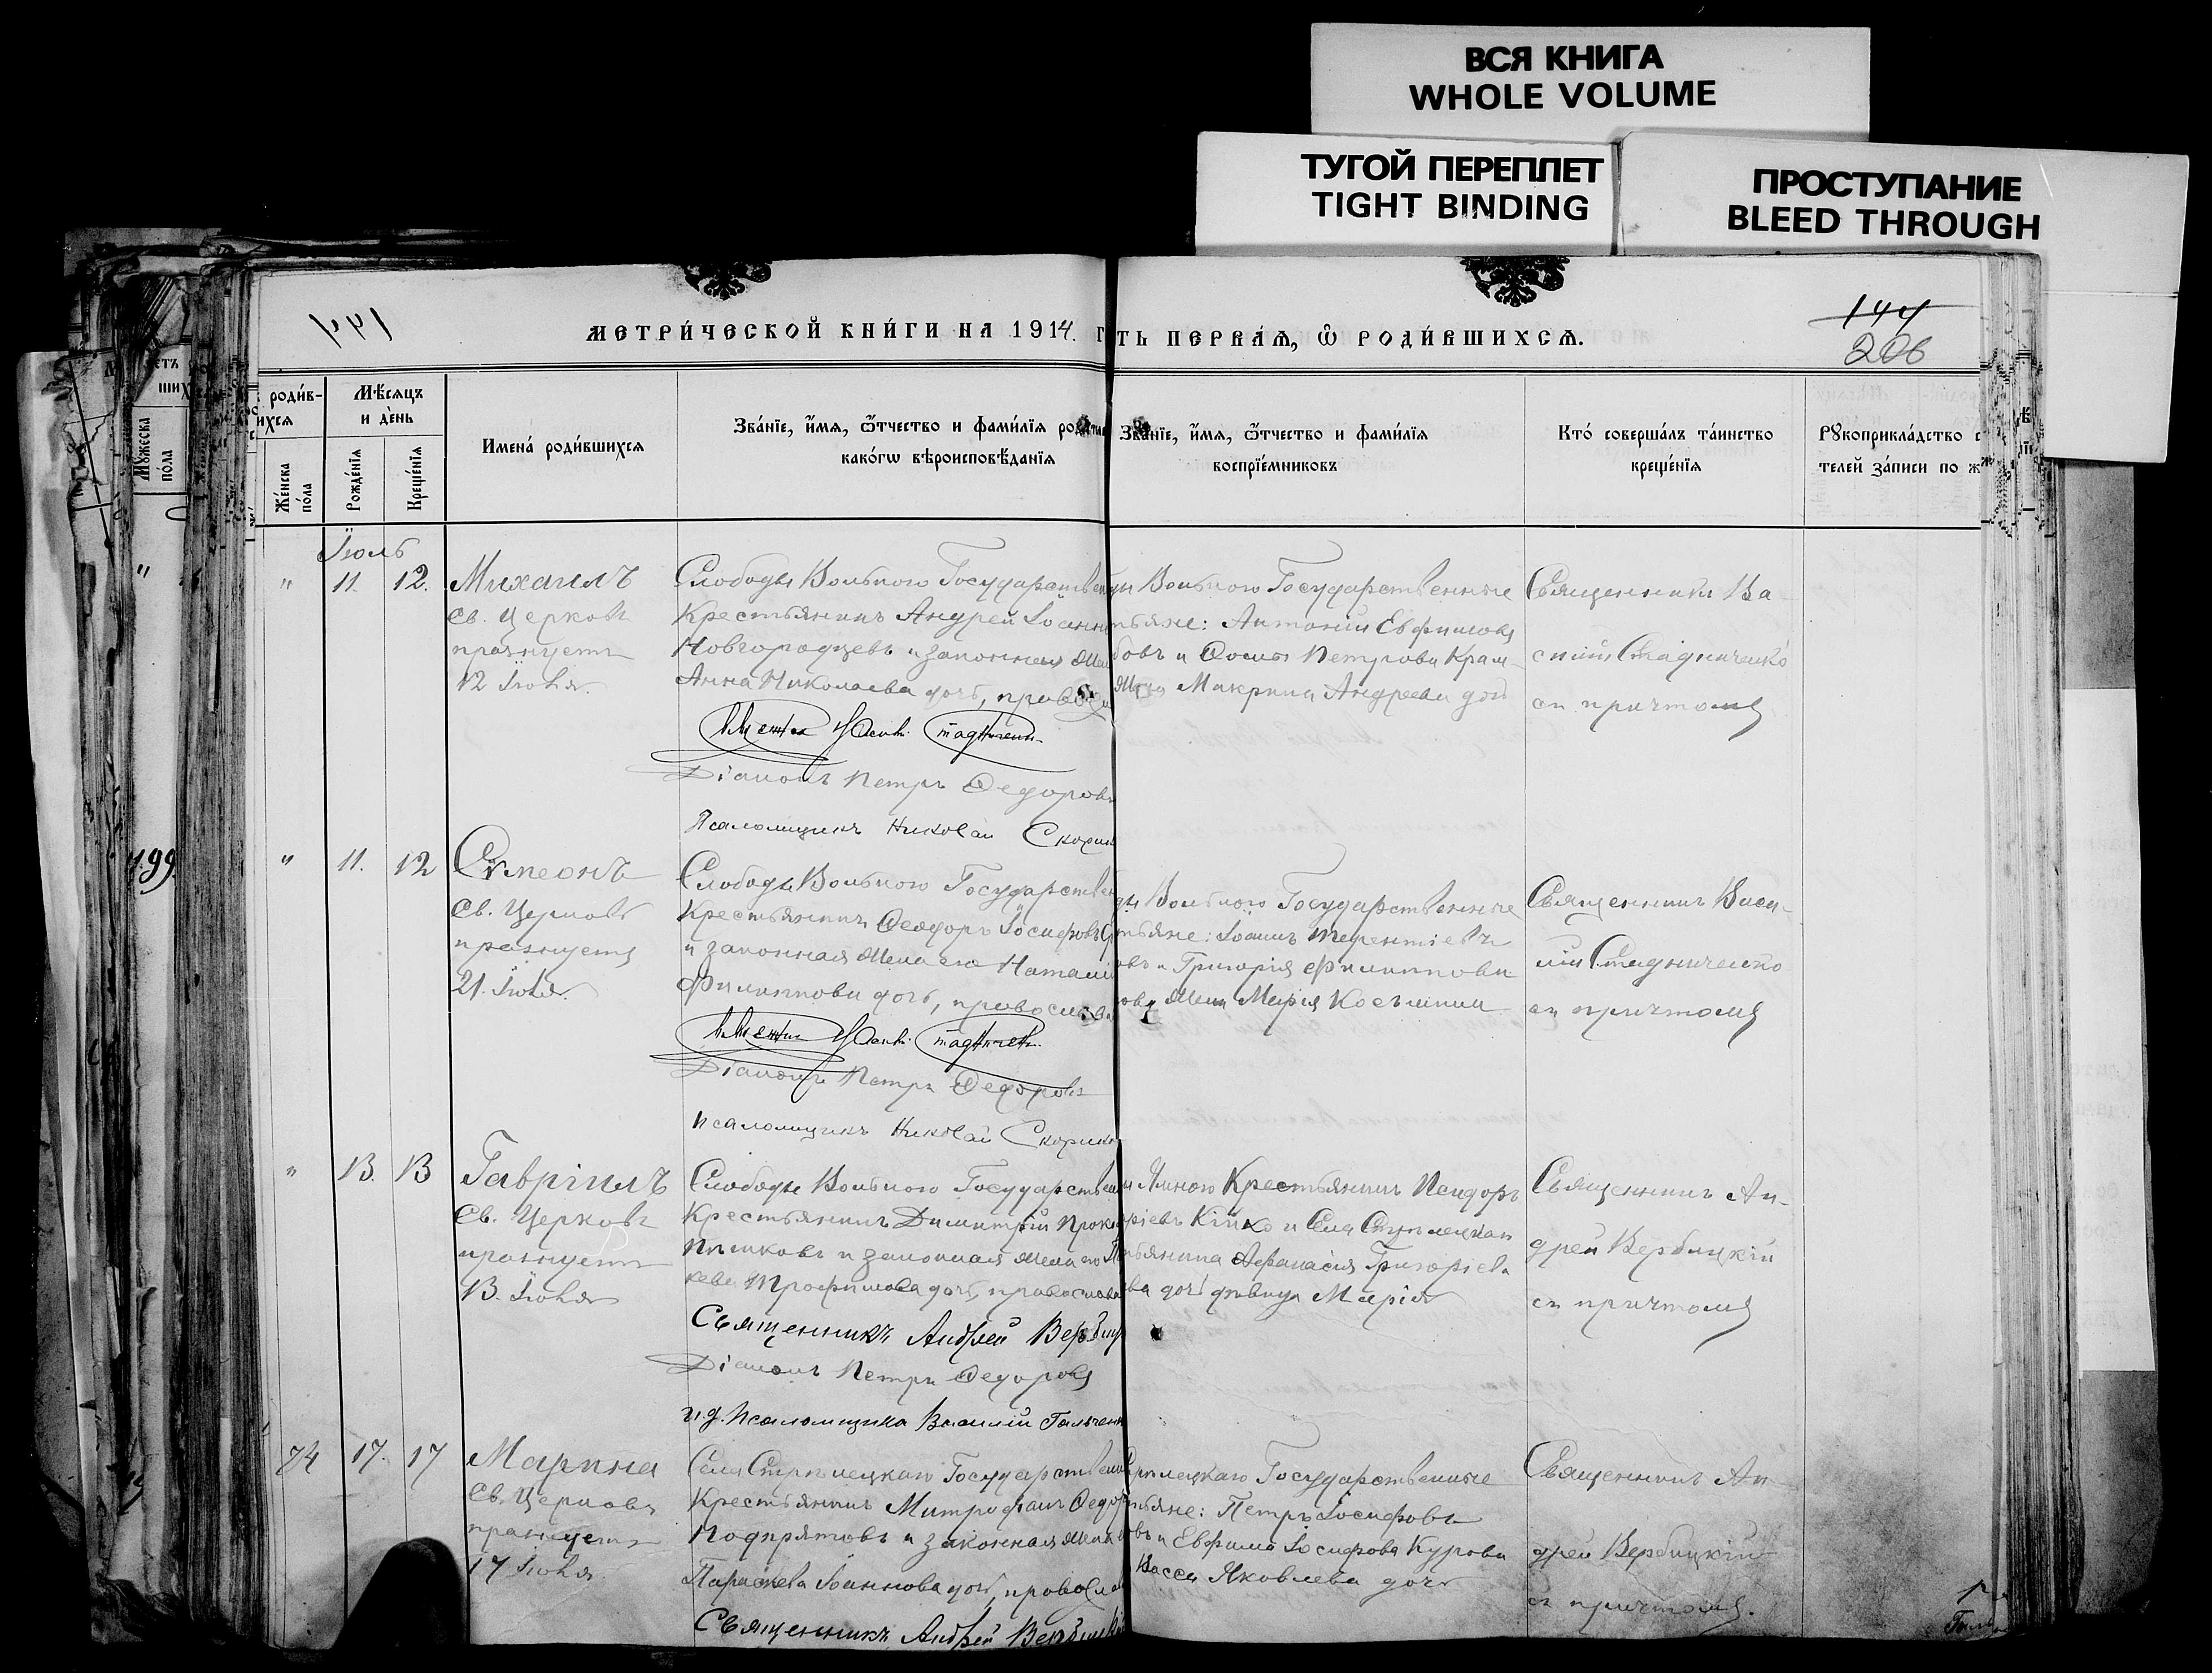 ВСЯ КНИГА
WHOLE VOLUME
ТУГОЙ ПЕРЕПЛЕТ
TIGHT BINDING
ПРОСТУПАНИЕ
BLEED THROUGH
МЕТРИ́ЧЕСКОЙ КНИ́ГИ НА 1914. Г
ТЬ ПЕРВА́Ѧ, Ѽ РОДИ́ВШИХСѦ.
144
206
роди́в-
ихсѧ
Же́нска по́ла
Мѣ́сяцъ
и де́нь
Рожде́нїѧ
Креще́нїѧ
Имена́ роди́вшихсѧ
Зва́нїе, и҆́мѧ, ѻ҆́тчество и фами́лїѧ
како́гѡ вѣроисповѣ́данїѧ
Зва́нїе, и҆́мѧ, ѻ҆́тчество и фами́лїѧ
воспрїе́мниковъ
Кто́ соверша́лъ та́инство
креще́нїѧ
Рꙋкоприкла́дство с
телей за́писи по ж
Іюль
" 11. 12. Михаилъ
Св. Церковь
празнуетъ
12 Іюля.
Слободы Вольного Государствен
Крестьянинъ Андрей Іоанн
Новгородцевъ и законная Же
Анна Николаева дочь, право
Діаконъ Петръ Ѳедоровъ
Псаломщикъ Николай Скори
Вольного Государственные
тьяне: Антоній Евфимовъ
бовъ и Ѳомы Петрова Крам-
Жена Макрина Андреева доч
Священникъ Ва-
силій Стадниченко
съ причтомъ
199
" 11. 12 Симеонъ
Св. Церковь
празнуетъ
21. Іюля.
Слободы Вольного Государствен
Крестьянинъ Ѳеодоръ Іосифовъ
и законная Жена его Наталі
Филиппова дочь, православ
Діаконъ Петръ Ѳедоровъ
Псаломщикъ Николай Скорик
Вольного Государственные
тьяне: Іоаннъ Терентіевъ
овъ и Григорія Филиппова
Жена Марія Косьмина
Священникъ Васи-
лій Стадниченко
съ причтомъ
" 13. 13 Гавріилъ
Св. Церковь
празнуетъ
13. Іюля
Слободы Вольного Государствен
Крестьянинъ Димитрій Прок
и законная Жена его П
кева Трофимова дочь, православ
Священникъ Андрей Вербиц
Діаконъ Петръ Ѳедоровъ
и. д. Псаломщика Василій Гальченк
Крестьянинъ Исидоръ
ріевъ Кійко и Села Стрѣлецкаго
тьянина Аѳанасія Григоріева
ва дочь дѣвица Марія
Священникъ Ан-
дрей Вербицкій
съ причтомъ
74 17. 17 Марина
Св. Церковь
празнуетъ
17 Іюля
Села Стрѣлецкаго Государствен
Крестьянинъ Митрофанъ Ѳедор
Подпрятовъ и законная Жена
Параскева Іоаннова дочь, православ
Священникъ Андрей Вербицкій
рѣлецкаго Государственные
тьяне: Петръ Іосифовъ
овъ и Евфима Іосифова Курова
Васса Яковлева дочь
Священникъ Ан-
дрей Вербицкій
съ причтомъ.